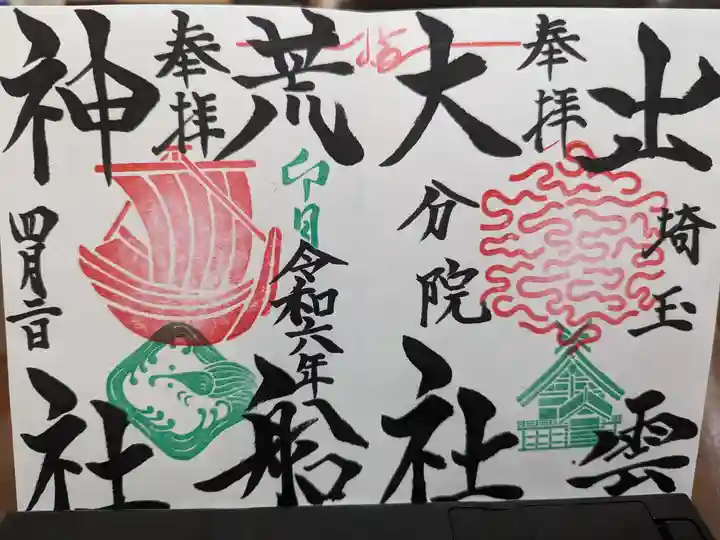 出雲
埼玉
奉拝
大社
分院
荒船
奉拝
神社
卯月
令和六年
四月二日